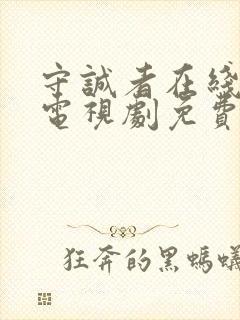 守誠者在綫
電視劇免費
狂奔的黑螞蟻